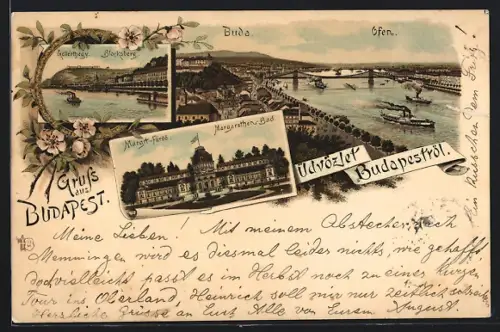 Gellérthegy Blocksberg
Buda.
Ofen.
Margit-Fürdő
Margarethen-Bad
Üdvözlet
Budapestről.
Gruß
aus
BUDAPEST.
Meine Lieben! Mit meinem Abstecher nach
Memmingen wird es diesmal leider nichts, wie gehofft,
doch vielleicht passt es im Herbst noch zu einer kurzen
Tour ins Oberland, Heinrich soll mir nur zeitlich schreiben
Herzliche Grüsse an Euch Alle von Eurem August.
dem Fritz!